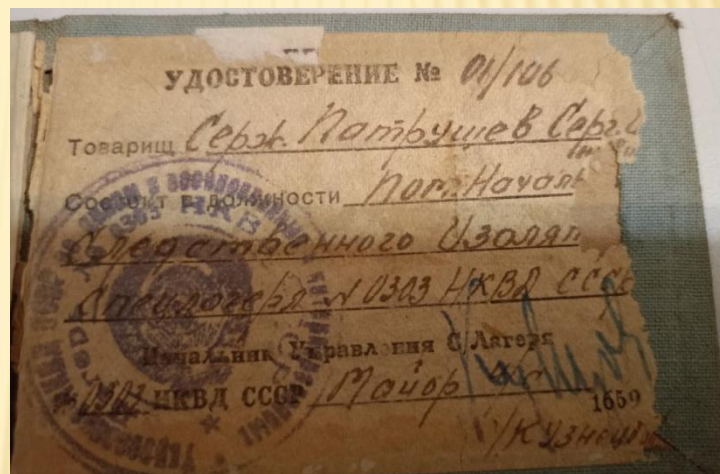 УДОСТОВЕРЕНИЕ № 01/106
Товарищ Серж. Патрушев Серг.
Состоит в должности Пом. Началь
Следственного Изоля
Спецлагеря N 0303 НКВД СССР
Начальник Управления С/Лагеря
0303 НКВД СССР Майор
1659
/Кузнецов